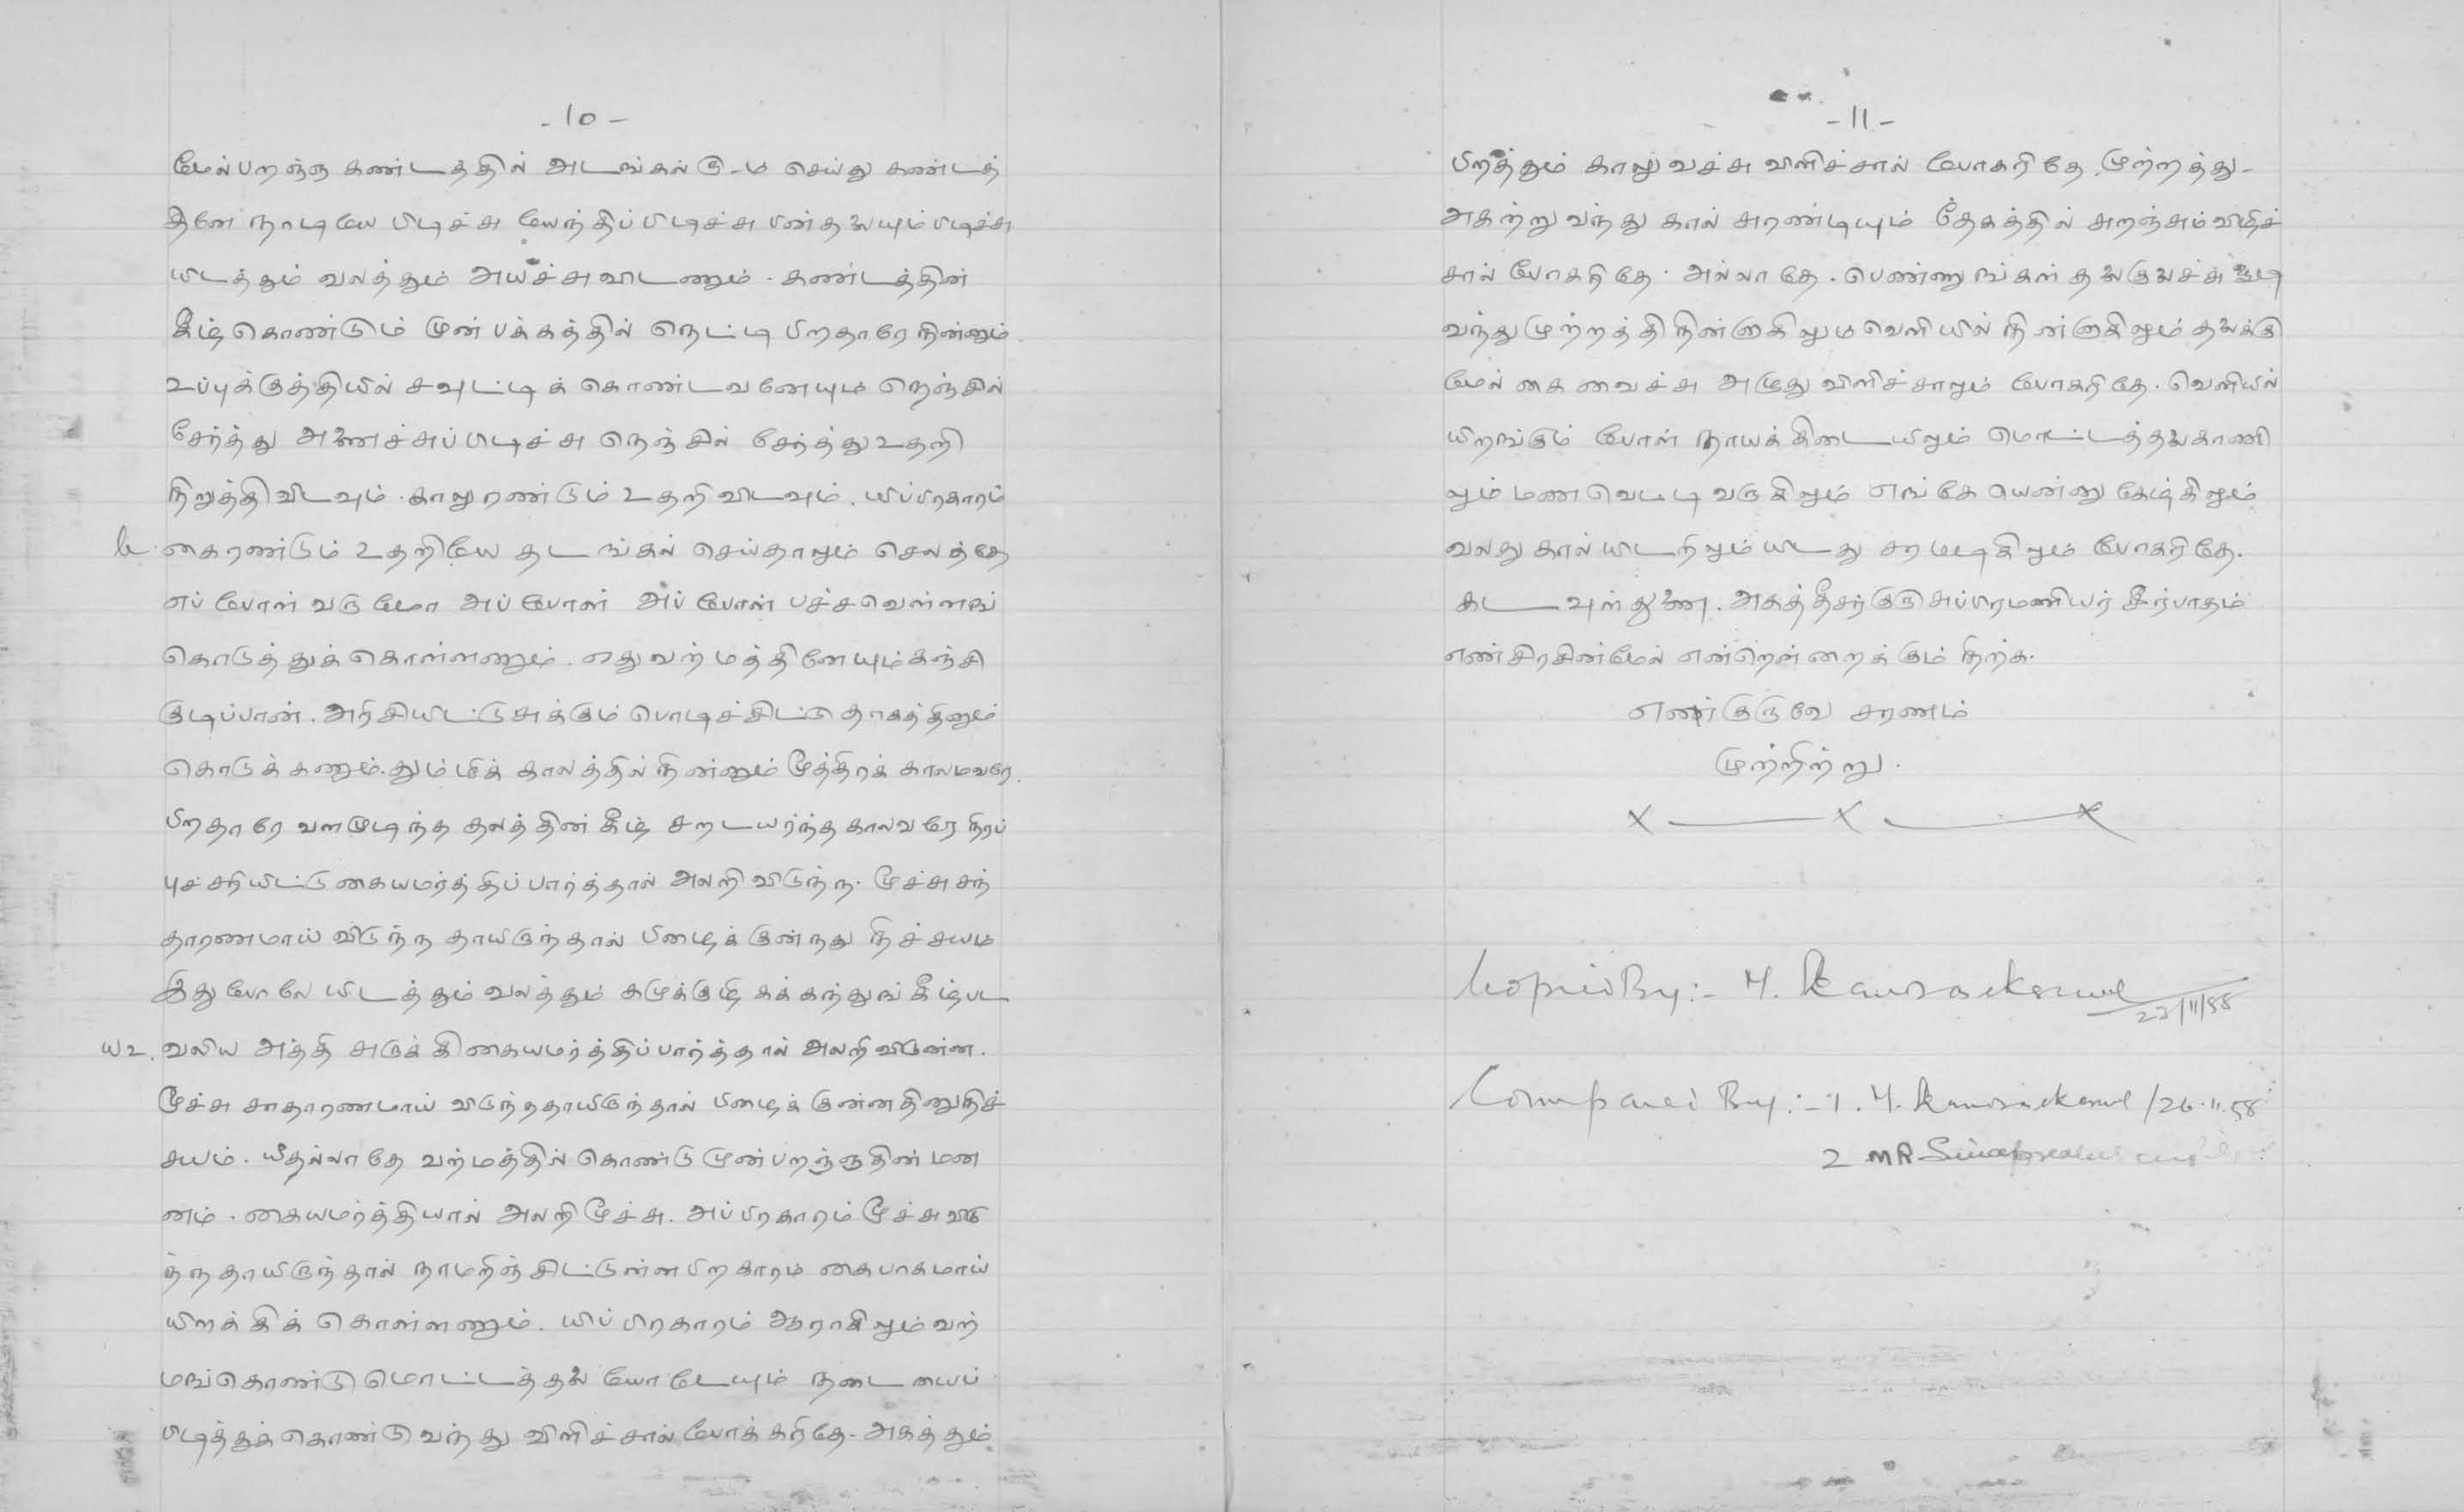 -10-
மேல்பறஞ்ஞ கண்டத்தில் அடங்கல் ரு-ம செய்து கண்டத்
தினே நாடியே பிடிச்சு யேந்திப்பிடிச்சு பின்தலையும்பிடிச்சு
யிடத்தும் வலத்தும் அயச்சுவிடணும். கண்டத்தின்
கீழ்கொண்டும் முன்பக்கத்தில் நெட்டி பிறதாரேநின்னும்
உப்புக்குத்தியில் சவுட்டிக் கொண்டவனேயும் நெஞ்சில்
சேர்த்து அணைச்சுப்பிடிச்சு நெஞ்சில் சேர்த்து உதறி
நிறுத்திவிடவும். காலுரண்டும் உதறிவிடவும். யிப்பிரகாரம்
கைரண்டும் உதறியே தடங்கல் செய்தாலும் செலத்தே
எப்போள் வருமோ அப்போள் அப்போள் பச்சவெள்ளங்
கொடுத்துக் கொள்ளணும். எதுவர்மத்தினேயும்கஞ்சி
குடிப்பான். அரிசியிட்டுசுக்கும் பொடிச்சிட்டு தாகத்தினும்
கொடுக்கணும். தும்மிக் காலத்தில்நின்னும் மூத்திரக் காலமவரே.
பிறதாரே வளமுடிந்த தலத்தின்கீழ் சறடயர்ந்த காலவரே நிரப்
புச்சரியிட்டு கையமர்த்திப்பார்த்தால் அலறிவிடுந்ந. மூச்சுசந்
தாரணமாய் விடுந்ந தாயிருந்தால் பிழைக்குன்நது நிச்சயம
இதுபோலே யிடத்தும் வலத்தும் கமுக்குழி கக்கந்துங் கீழ்பட
ய௨. வலிய அத்தி அருக்கிகையமர்த்திப்பார்த்தால் அலறிவிடுன்ன.
மூச்சு சாதாரணமாய் விடுந்ததாயிருந்தால் பிழைக்குன்னதினுநிச்
சயம். யீதல்லாதே வர்மத்தில்கொண்டு முன்பறஞ்ஞதின் மன
னம். கையமர்த்தியால் அலறிமூச்சு. அப்பிரகாரம் மூச்சு விடு
ந்நதாயிருந்தால் நாமறிஞ்சிட்டுள்ள பிறகாரம கைபாகமாய்
யிறக்கிக் கொள்ளணும். யிப்பிரகாரம் ஆராகிலும்வர்
மங்கொண்டுமொட்டத்தலையோடேயும் நடையைப்
பிடித்துக்கொண்டுவந்து விளிச்சால்போக்கரிதே. அகத்தும்
-11-
பிறத்தும் காலுவச்சு விளிச்சால் போகரிதே. முற்றத்து-
அகற்றுவந்து கால் சுரண்டியும் தேகத்தில் சுறஞ்சும்விழிச்
சால் போகரிதே. அல்லாதே. பெண்ணுங்கள் தலைகுலைச்சு
வந்துமுற்றத்திநின்னுகிலும வெளியில்நின்னுகிலும் தலைக்கு
மேல் கைவைச்சு அழுதுவிளிச்சாலும் போகரிதே. வெளியில்
யிறங்கும் போள் நாயக்கிடையிலும் மொட்டத்தலைகாணி
லும்மணவெட்டிவருகிலும் எங்கே யென்னுகேழ்கிலும்
வலது கால்யிடறிலும்யிடது சரமடிகிலும் போகரிதே.
கடவுள்துணை. அகத்தீசர்குருசுப்பிரமணியர் சீர்பாதம்
எண்சிரசின்மேல் என்றென்றைக்கும் நிற்க.
எண்குருவே சரணம்
முற்றிற்று.
x———x———x
Copied By:- M.
Compared By:- 1. M. /26.11.58
2 MR